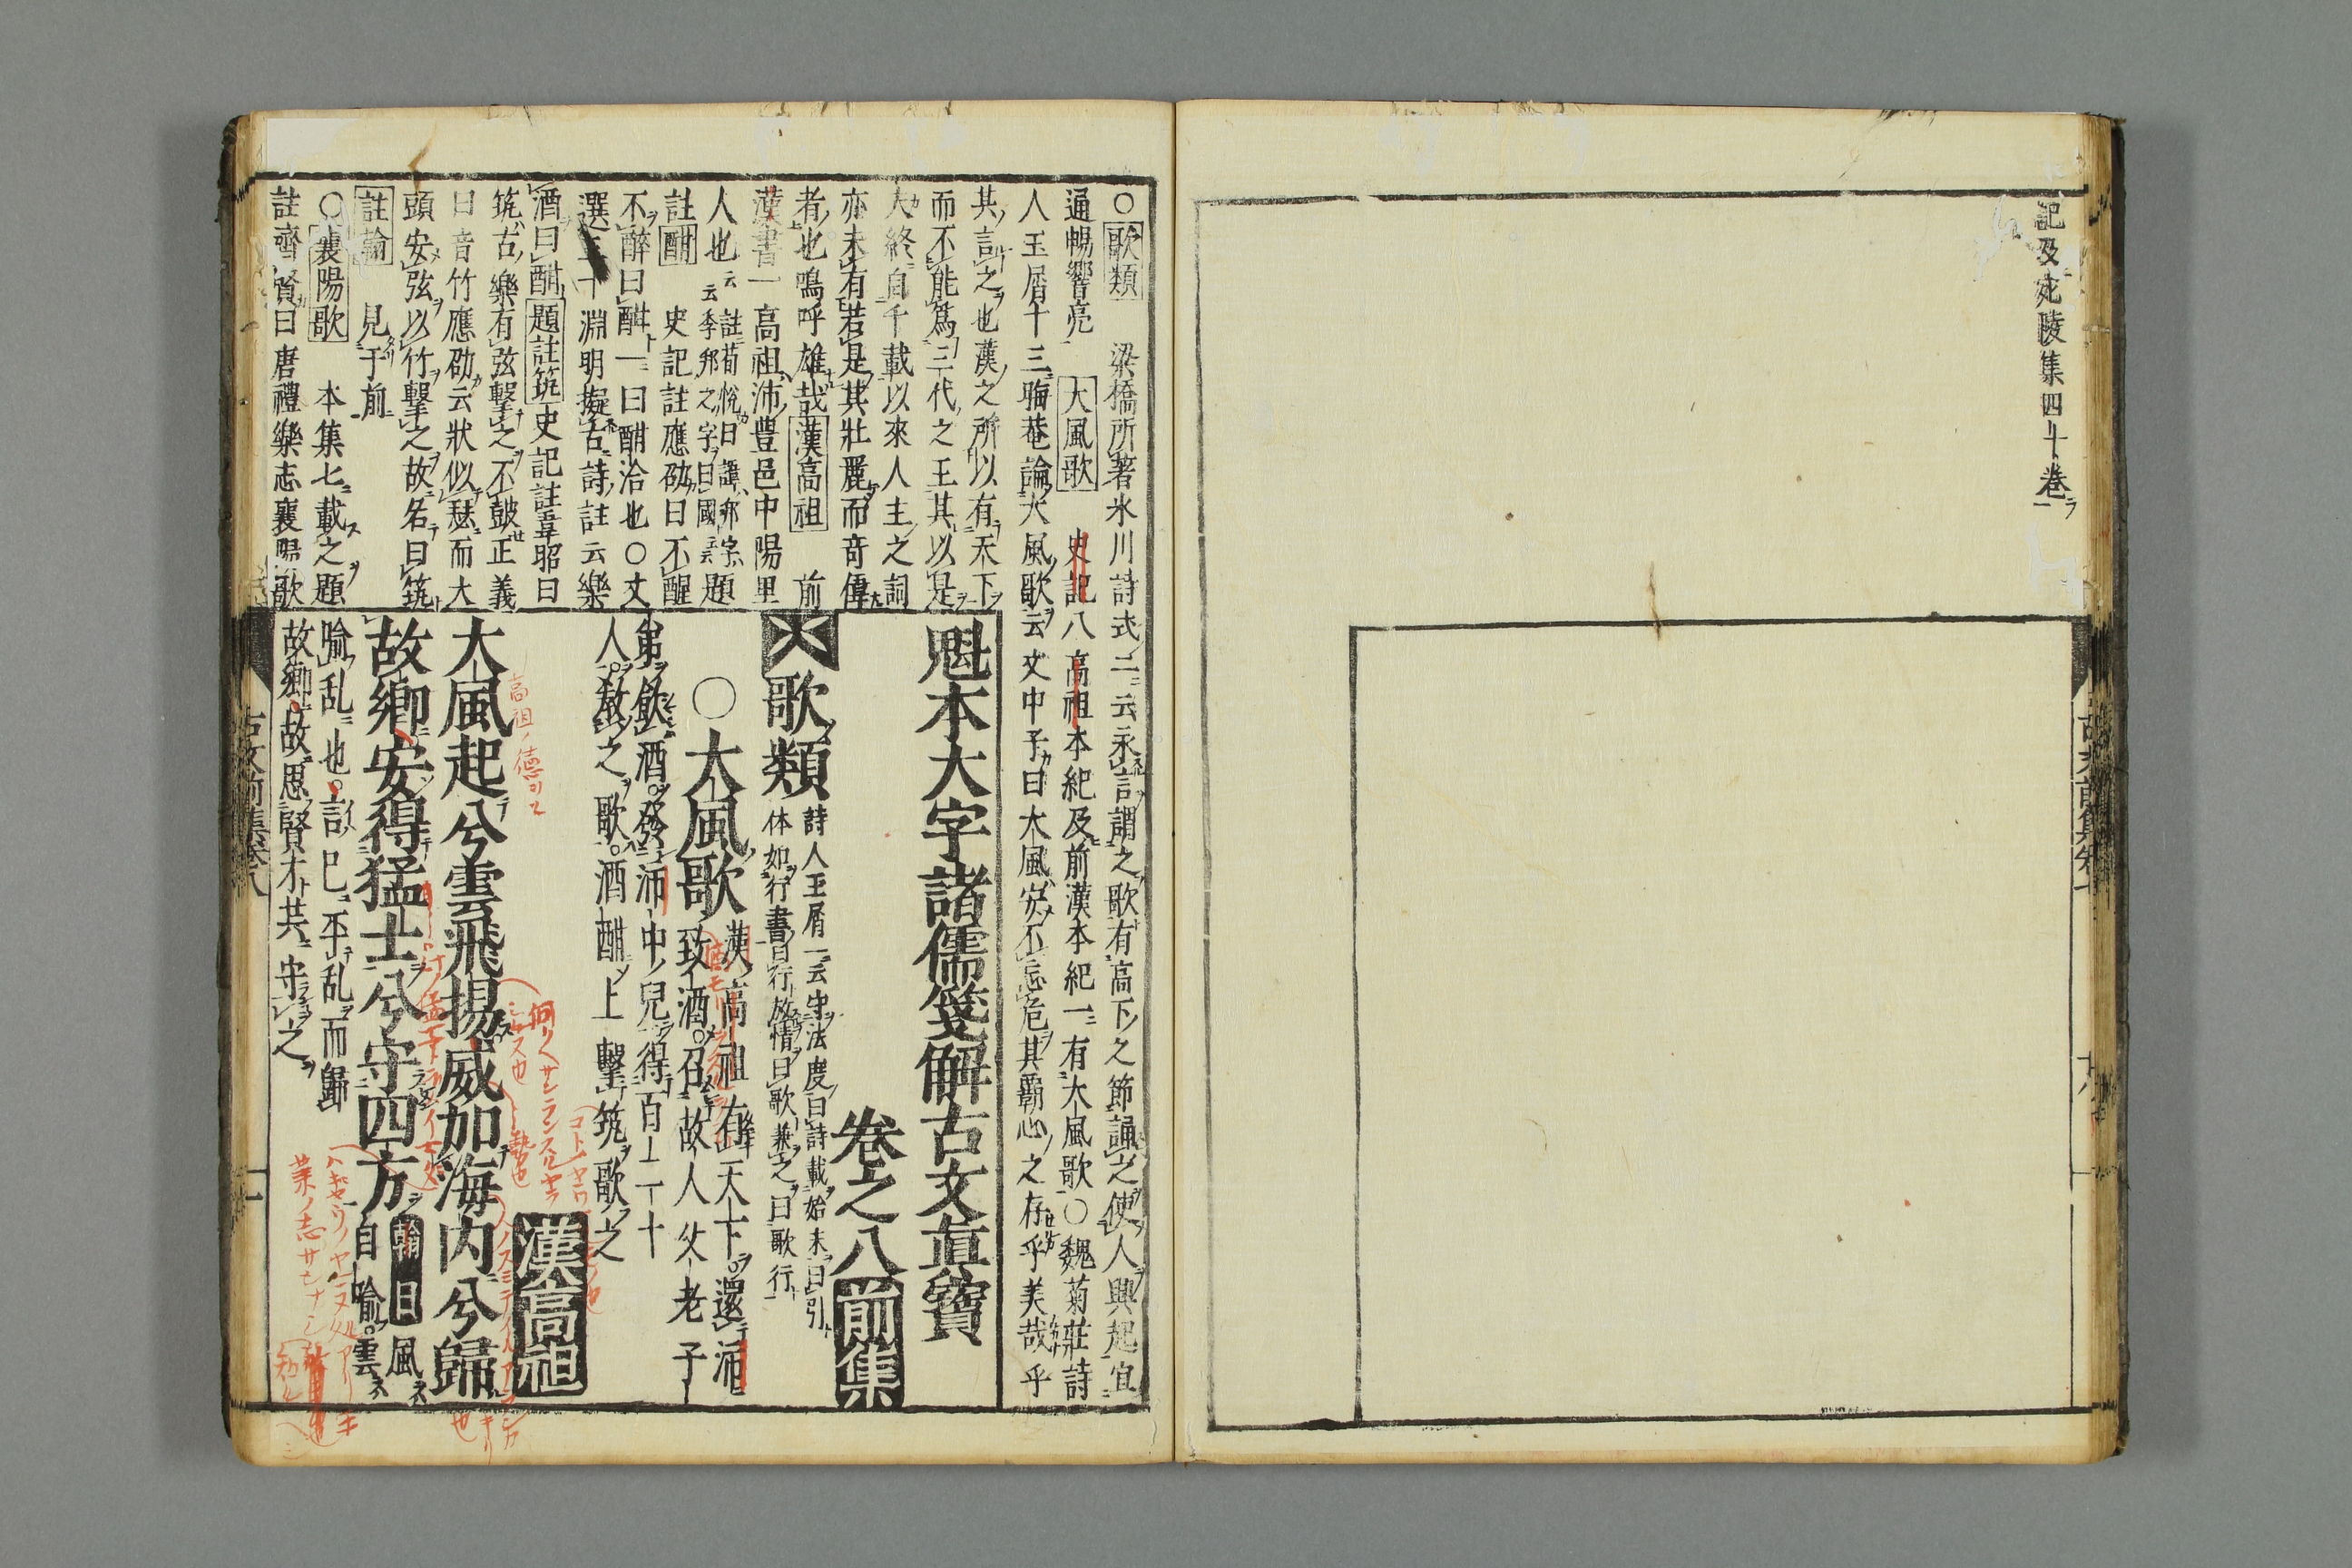 記及宛陵集四十巻
古文前集卷七
十八
○歌類 梁橋所著氷川詩式二云永言謂之歌有高下之節諷之使人興起宜
通暢響亮 大風歌 史記八高祖本紀及前漢本紀一有大風歌○魏菊莊詩
人玉屑十三晦菴論大風歌云文中子曰大風安不忘危其覇心之存乎美哉乎
其言之也漢之所以有天下
而不能爲三代之王其以是
夫終自千載以來人主之詞
亦未有若是其壯麗而奇偉
者也鳴呼雄哉 漢高祖 前
漢書一高祖沛豊邑中陽里
人也云云註荀悅曰諱邦字季邦之字曰國云云題
註酣 史記註應劭曰不醒
不醉曰酣一曰酣洽也○文
選三十淵明擬古詩註云樂
酒曰酣 題註筑 史記註韋昭曰
筑古樂有弦擊之不皷正義
曰音竹應劭云狀似瑟而大
頭安弦以竹擊之故名曰筑
註翰 見于前
○襄陽歌 本集七載之題
註齊賢曰唐禮樂志襄陽歌
魁本大字諸儒箋解古文眞寳
卷之八 前集
歌類 詩人玉屑一云守法度曰詩載始末曰引
体如行書曰行放情曰歌兼之曰歌行
○大風歌 漢高祖有天下還沛
致酒召故人父老子
弟飲酒發沛中兒得百二十
人敎之歌酒酣上擊筑歌之
漢高祖
大風起兮雲飛揚威加海内兮歸
故郷安得猛士兮守四方 翰曰風
自喻雲
喻乱也言已平乱而歸
故郷故思賢才共守之
古文前集卷八
一
高祖ノ德